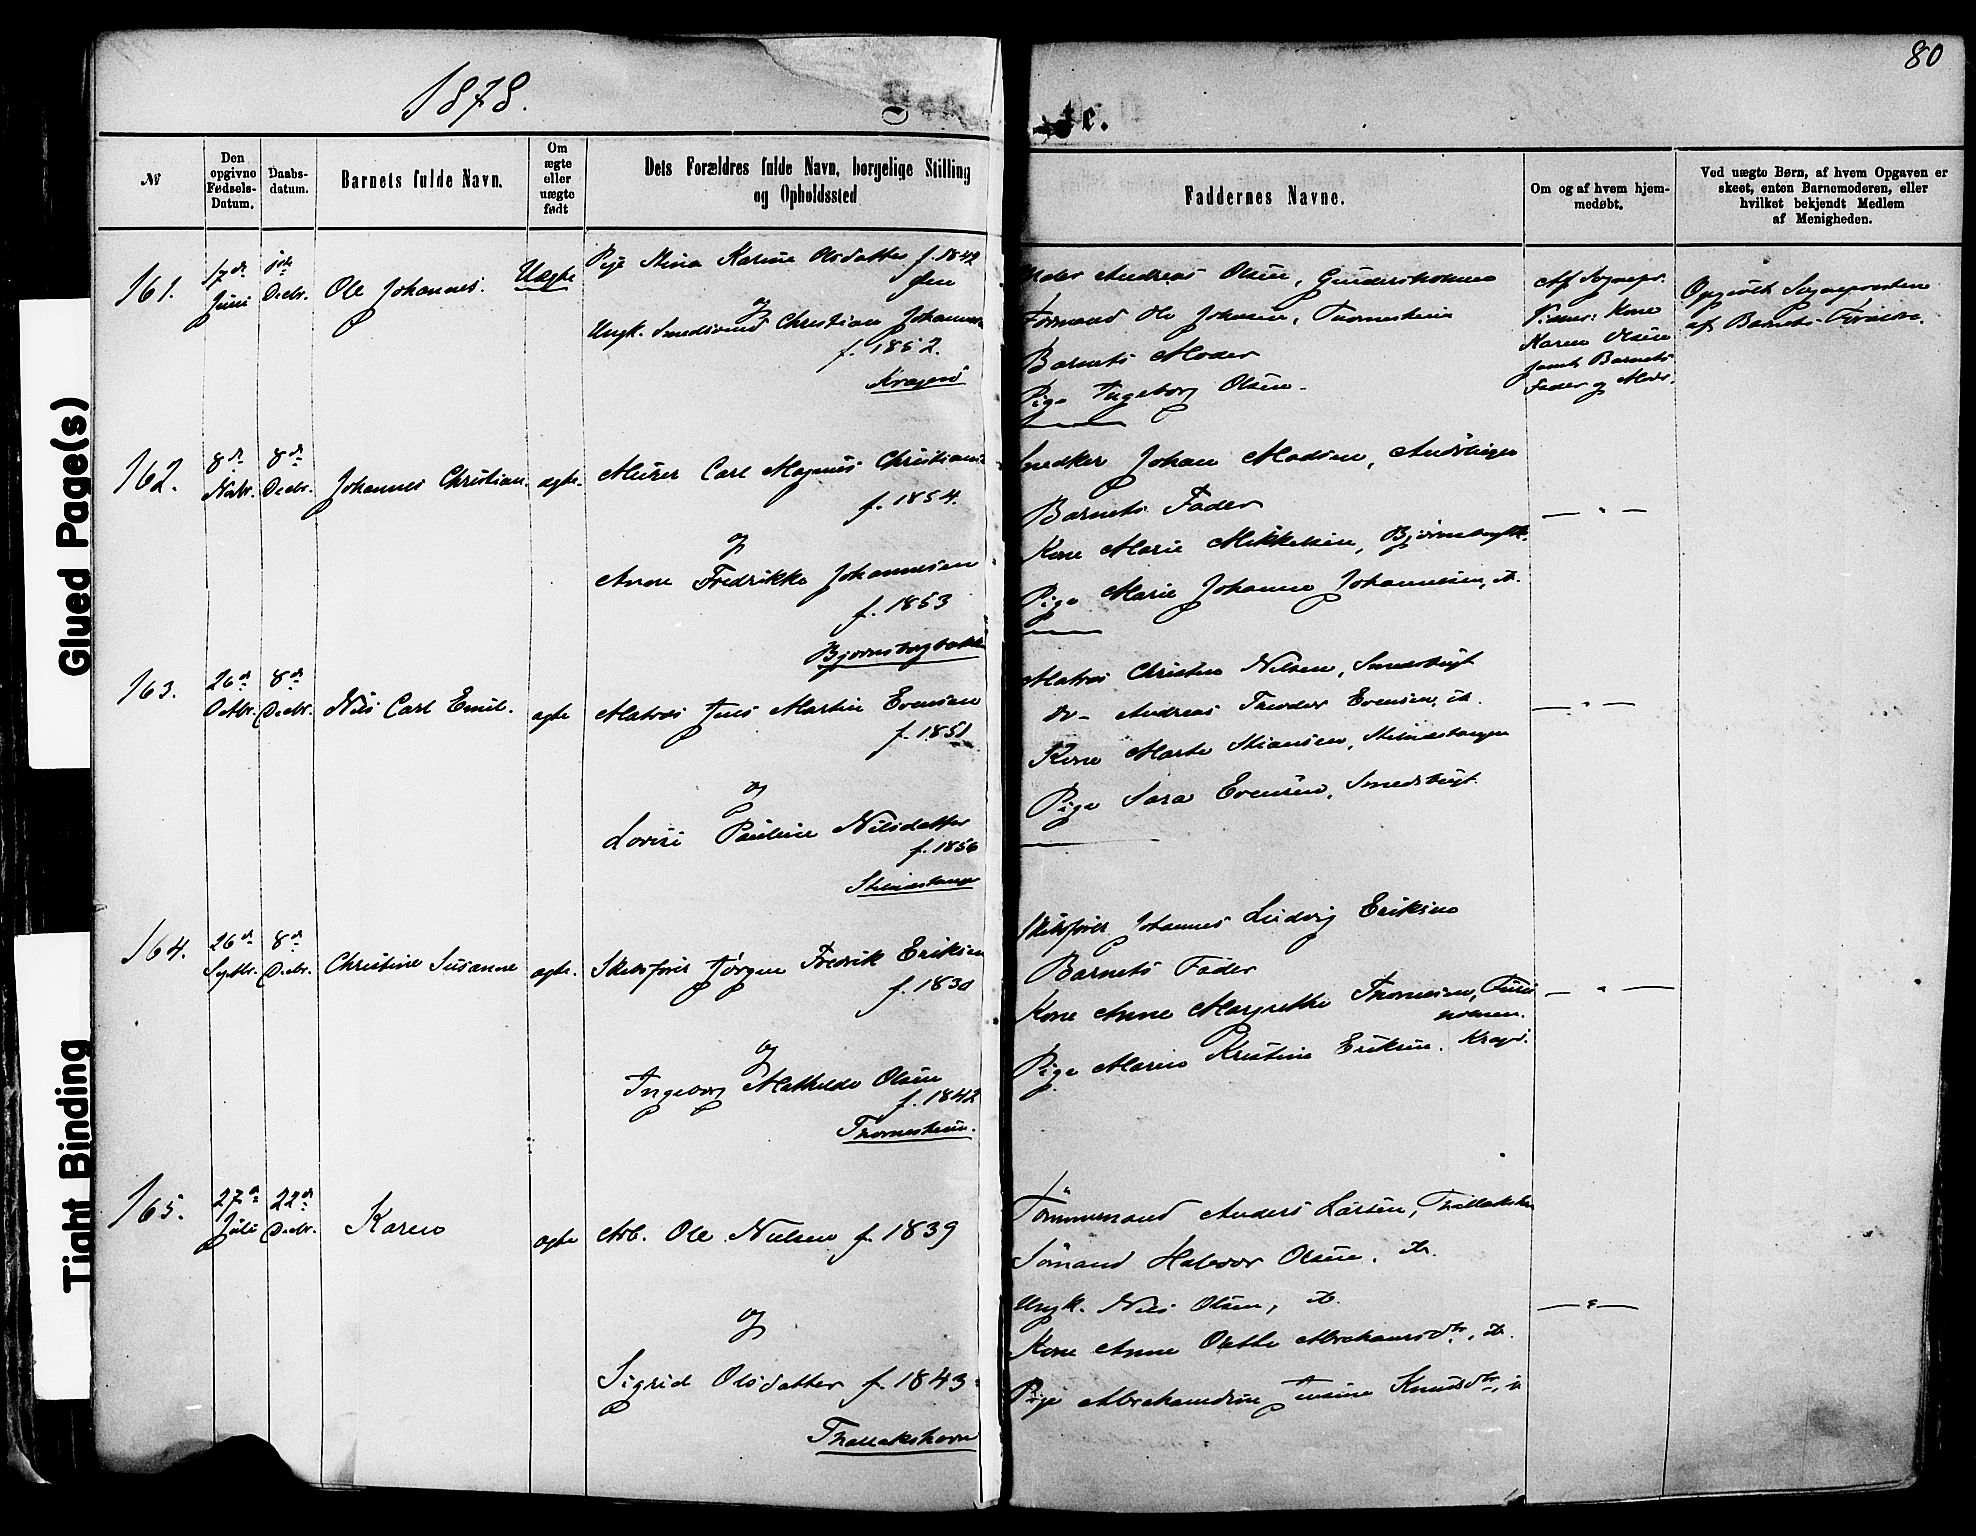 80
1878.
te.
№
Den opgivne Fødsels-Datum.
Daabs-datum.
Barnets fulde Navn.
Om ægte eller uægte født
Dets Forældres fulde Navn, borgelige Stilling
og Opholdssted
Faddernes Navne.
Om og af hvem hjem-
medøbt.
Ved uægte Børn, af hvem Opgaven er
skeet, enten Barnemoderen, eller
hvilket bekjendt Medlem
af Menigheden.
161.
17de Juni
1ste Decbr.
Ole Johannes.
Uægte
Pige Stina Karine Olsdatter f. 1842
og
Ungk. Christian
f. 1852.
Kragerø
Andreas Olsen, Gundersholmen
Formand Ole Johnsen,
Barnets Moder
Pige Ingeborg Olsen.
Af
Kone
Karen Olsen
samt Barnets
Fader og Moder.
Opgivet Sognepræsten
af Barnets Forældre.
162.
8de Novbr.
8de Decbr.
Johannes Christian.
ægte.
Murer Carl Magnus
f. 1854.
og
Anne Fredrikke Johannesen
f. 1853
Bjørnsborgbakken
Snedker Johan Madsen,
Barnets Fader
Kone Marie Mikkelsen,
Pige Marie Johanne Johannesen, do.
163.
26de Octbr.
8de Decbr.
Nils Carl Emil.
ægte
Matros Jens Martin Evensen
f. 1851
og
Lovise Pauline Nilsdatter
f. 1856
Stilnæstangen
Matros Christen Nilsen, Smedsbugt
do- Andreas Theodor Evensen, do.
Kone Marte Stiansen, Stilnæstangen
Pige Sara Evensen, Smedsbugt.
164.
26de Septbr.
8de Decbr.
Christine Susanne
ægte.
Skibsfører Jørgen Fredrik Eriksen
f. 1830
og
Ingeborg Mathilde Olsen
f. 1842
Skibsfører Johannes Ludvig Eriksen
Barnets Fader
Kone Anne Margrethe Thomesen,
Pige Maren Kristine Eriksen. Kragø.
165.
27de Juli
22de Decbr.
Karen
ægte
Arb. Ole Nielsen f. 1839
og
Sigrid Olsdatter f. 1843
Tømmermand Anders Larsen,
Sømand Halvor Olsen, do.
Ungk. Nils Olsen, do.
Kone Anne Dorthe Abrahamsdtr., do.
Pige Abrahamdine Knudsdtr.,
Glued Page(s)
Tight Binding